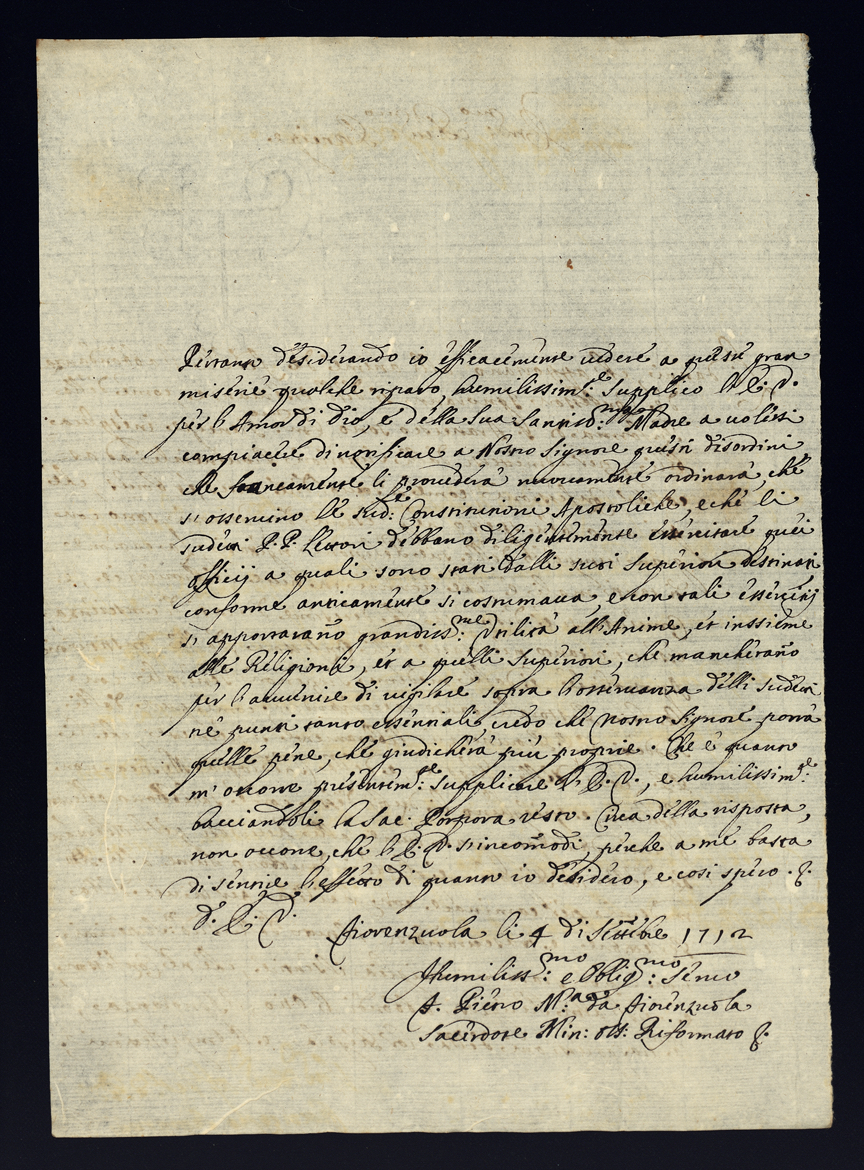 Pertanto desiderando io efficacemente vedere a queste gran
miserie qualche riparo, humilissim:te supplico l'E. V.
per l'Amor di Dio, e della Sua Santiss:ma Madre a volersi
compiacere di notificare a Nostro Signore questi disordini
che li procederà nuovamente ordinarà, che
si osservino le sud:e Constitutioni Apostoliche, e che li
sudetti P.P. Lettori debbano diligentemente essercitare quei
officij a quali sono stati dalli suoi Superiori destinati
conforme anticamente si costumava, e con tali essercitij
si apportarano grandiss:me Utilità all'Anime, et inssieme
alle Religioni, et a quelli Superiori, che mancherano
per l'avvenire di vigilare sopra l'osservanza delli sudetti
ne punti tanto essenziali credo che Nostro Signore porrà
quelle pene, che giudicherà più proprie. Che è quanto
m'occorre presentem:te supplicare l'E. V., e humilissim:te
bacciandoli la Sac: Porpora resto. Circa della risposta,
non occorre, che l'E. V. s'incomodi, perche a me basta
di sentire l'effetto di quanto io desidero, e così spero.
D. E. V.
Fiorenzuola li 4 di Settebre 1712
Humiliss:mo e Oblig:mo Servo
F. Pietro M:a da Fiorenzuola
Sacerdote Min: Oss: Riformato